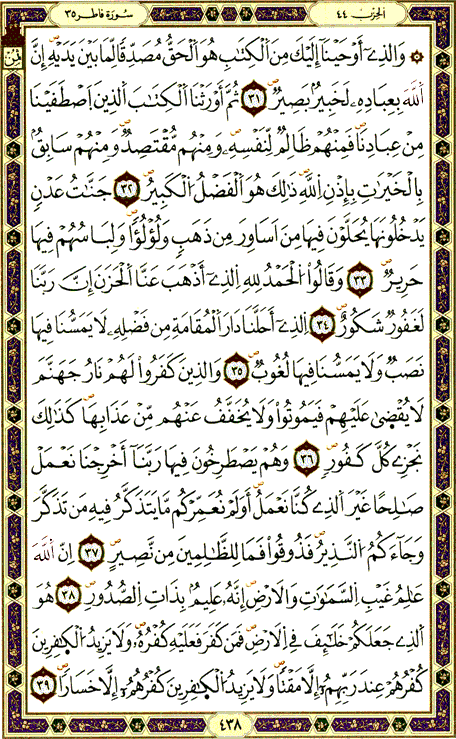 الحزب ٤٤
سورة فاطر ٣٥
ثمن
۞ وَالذِےٓ أَوْحَيْنَآ إِلَيْكَ مِنَ اَلْكِتَٰبِ هُوَ اَلْحَقُّ مُصَدِّقاً لِّمَا بَيْنَ يَدَيْهِ إِنَّ
اَللَّهَ بِعِبَادِهِۦ لَخَبِيرُۢ بَصِيرٌ ٣١ ثُمَّ أَوْرَثْنَا اَلْكِتَٰبَ اَلذِينَ اَصْطَفَيْنَا
مِنْ عِبَادِنَا فَمِنْهُمْ ظَالِمٌ لِّنَفْسِهِۦ وَمِنْهُم مُّقْتَصِدٌ وَمِنْهُمْ سَابِقُۢ
بِالْخَيْرَٰتِ بِإِذْنِ اِللَّهِ ذَٰلِكَ هُوَ اَلْفَضْلُ اُلْكَبِيرُ ٣٢ جَنَّٰتُ عَدْنٍ
يَدْخُلُونَهَا يُحَلَّوْنَ فِيهَا مِنَ اَسَاوِرَ مِن ذَهَبٍ وَلُؤْلُؤاً وَلِبَاسُهُمْ فِيهَا
حَرِيرٌ ٣٣ وَقَالُوا۟ اُلْحَمْدُ لِلهِ اِلذِےٓ أَذْهَبَ عَنَّا اَلْحَزَنَ إِنَّ رَبَّنَا
لَغَفُورٌ شَكُورٌ ٣٤ اِلذِےٓ أَحَلَّنَا دَارَ اَلْمُقَامَةِ مِن فَضْلِهِۦ لَا يَمَسُّنَا فِيهَا
نَصَبٌ وَلَا يَمَسُّنَا فِيهَا لُغُوبٌ ٣٥ وَالذِينَ كَفَرُوا۟ لَهُمْ نَارُ جَهَنَّمَ
لَا يُقْضَىٰ عَلَيْهِمْ فَيَمُوتُوا۟ وَلَا يُخَفَّفُ عَنْهُم مِّنْ عَذَابِهَا كَذَٰلِكَ
نَجْزِے كُلَّ كَفُورٍ ٣٦ وَهُمْ يَصْطَرِخُونَ فِيهَا رَبَّنَآ أَخْرِجْنَا نَعْمَلْ
صَٰلِحاً غَيْرَ اَلذِے كُنَّا نَعْمَلُ أَوَلَمْ نُعَمِّرْكُم مَّا يَتَذَكَّرُ فِيهِ مَن تَذَكَّرَ
وَجَآءَكُمُ اُلنَّذِيرُ فَذُوقُوا۟ فَمَا لِلظَّٰلِمِينَ مِن نَّصِيرٍ ٣٧ اِنَّ اَللَّهَ
عَٰلِمُ غَيْبِ اِلسَّمَٰوَٰتِ وَالَارْضِ إِنَّهُۥ عَلِيمُۢ بِذَاتِ اِلصُّدُورِ ٣٨ هُوَ
اَلذِے جَعَلَكُمْ خَلَٰٓئِفَ فِے اِلَارْضِ فَمَن كَفَرَ فَعَلَيْهِ كُفْرُهُۥ وَلَا يَزِيدُ اُلْكٰ۪فِرِينَ
كُفْرُهُمْ عِندَ رَبِّهِمُۥٓ إِلَّا مَقْتاً وَلَا يَزِيدُ اُلْكٰ۪فِرِينَ كُفْرُهُمُۥٓ إِلَّا خَسَاراً ٣٩
٤٣٨